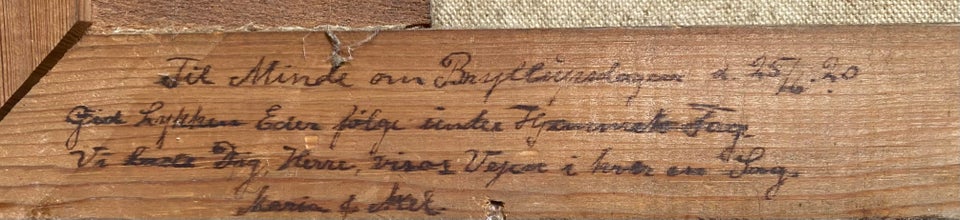 Til Minde om Bryllupsdagen d. 25/6. 20
Gid Lykken Eder følge under Hjemmets Tag.
Vi Dig, Herre, Vejen i hver en Sag.
Maria &